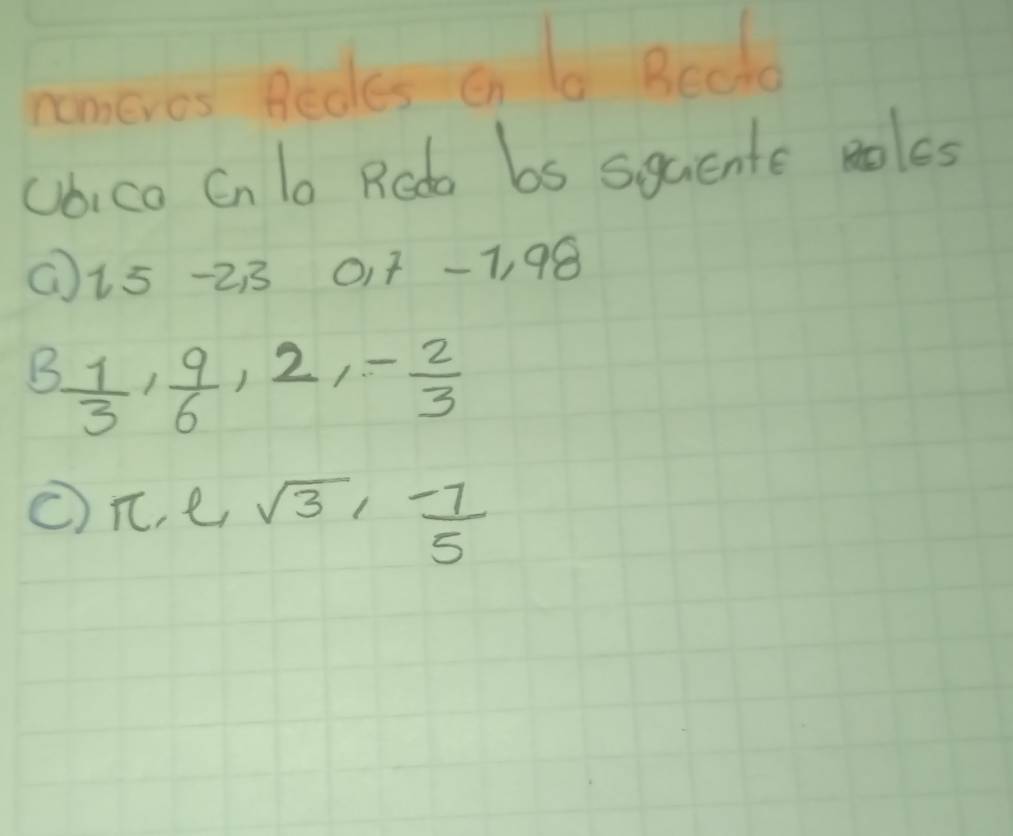 numeros Reales en la Recta
Ubica en la Recta los siguiente reales
a) 1,5 -2,3 0,7 -1,98
B 1/3, 9/6, 2, -2/3
c) π, e, √3, -1/5